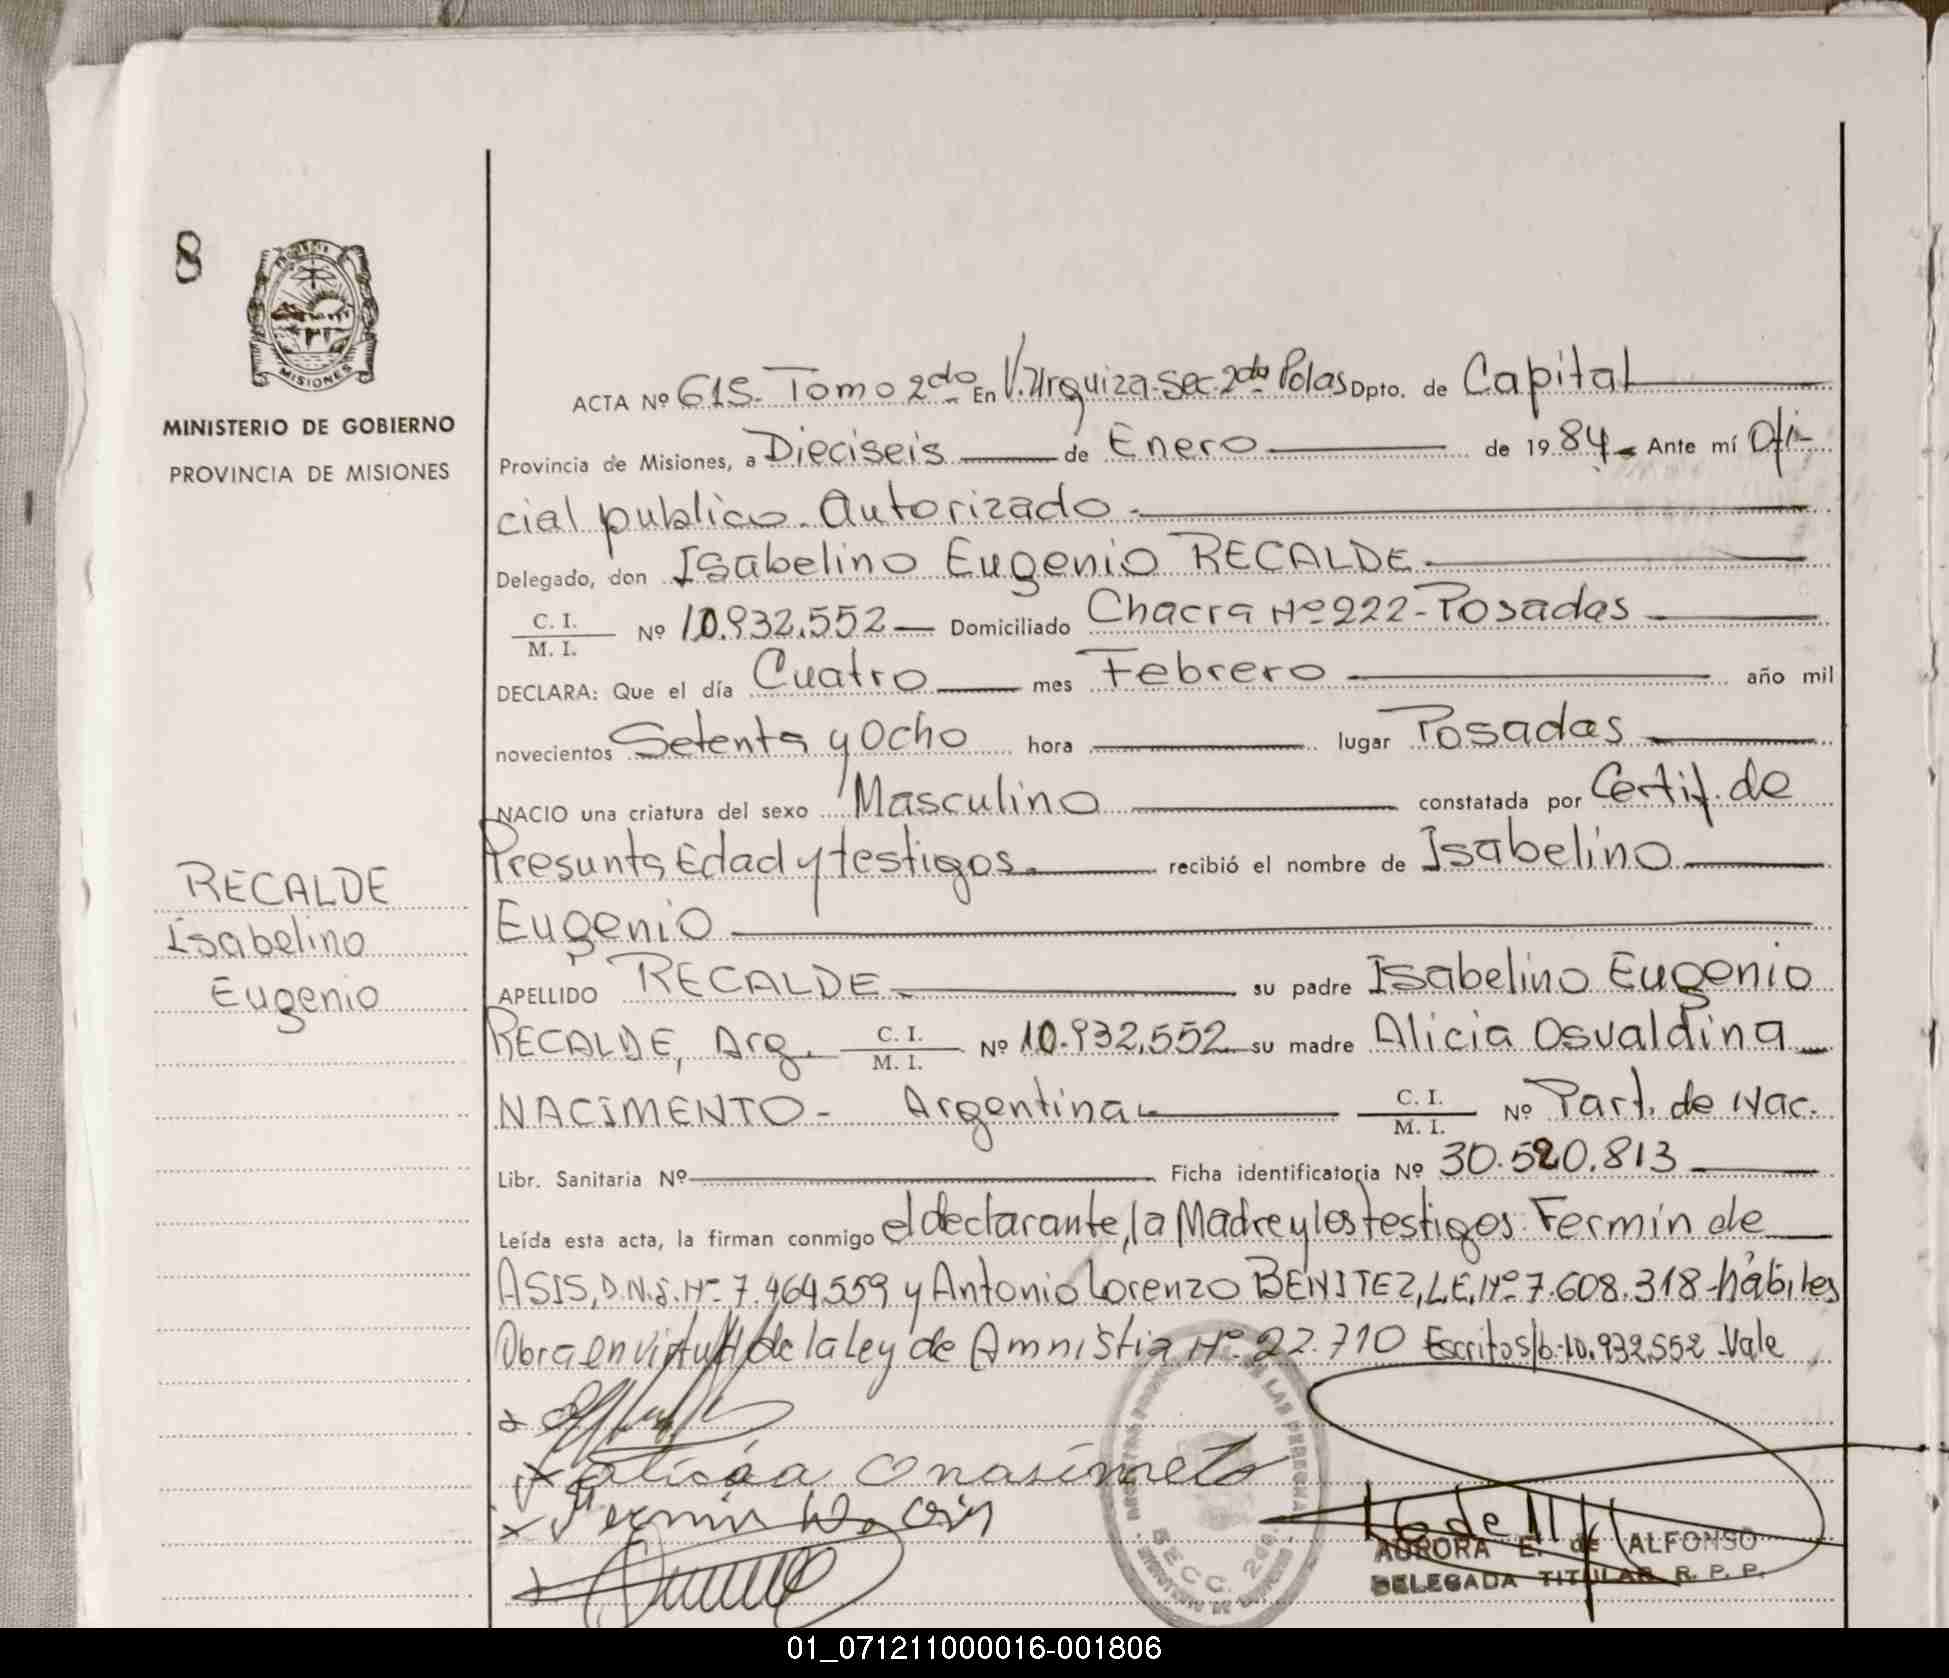 8
MISIONES
MINISTERIO DE GOBIERNO
PROVINCIA DE MISIONES
RECALDE
Isabelino
Eugenio
ACTA Nº 615. Tomo 2do En V. Urquiza-Sec. 2da Pdas Dpto. de Capital
Provincia de Misiones, a Dieciseis de Enero de 1984 Ante mí Ofi-
cial publico. Autorizado
Delegado, don Isabelino Eugenio RECALDE
C. I.
M. I. Nº 10.932.552 Domiciliado Chacra Nº 222-Posadas
DECLARA: Que el día Cuatro mes Febrero año mil
novecientos Setenta y Ocho hora lugar Posadas
NACIO una criatura del sexo Masculino constatada por Certif. de
Presunta Edad y testigos. recibió el nombre de Isabelino
Eugenio
APELLIDO RECALDE su padre Isabelino Eugenio
RECALDE, Arg. C. I.
M. I. Nº 10.932.552 su madre Alicia Osvaldina
NACIMENTO- Argentina C. I.
M. I. Nº Part. de Nac.
Libr. Sanitaria Nº Ficha identificatoria Nº 30.520.813
Leída esta acta, la firman conmigo el declarante, la Madre y los testigos: Fermin de
ASIS, D.N.I. Nº 7.464.559 y Antonio Lorenzo BENITEZ, L.E. Nº 7.608.318-hábiles
Obra en virtud de la Ley de Amnistia Nº 22.710 Escrito s/b-10.932.552-Vale
SECC. 2da.
AURORA E. de ALFONSO
DELEGADA TITULAR R. P. P.
01_071211000016-001806